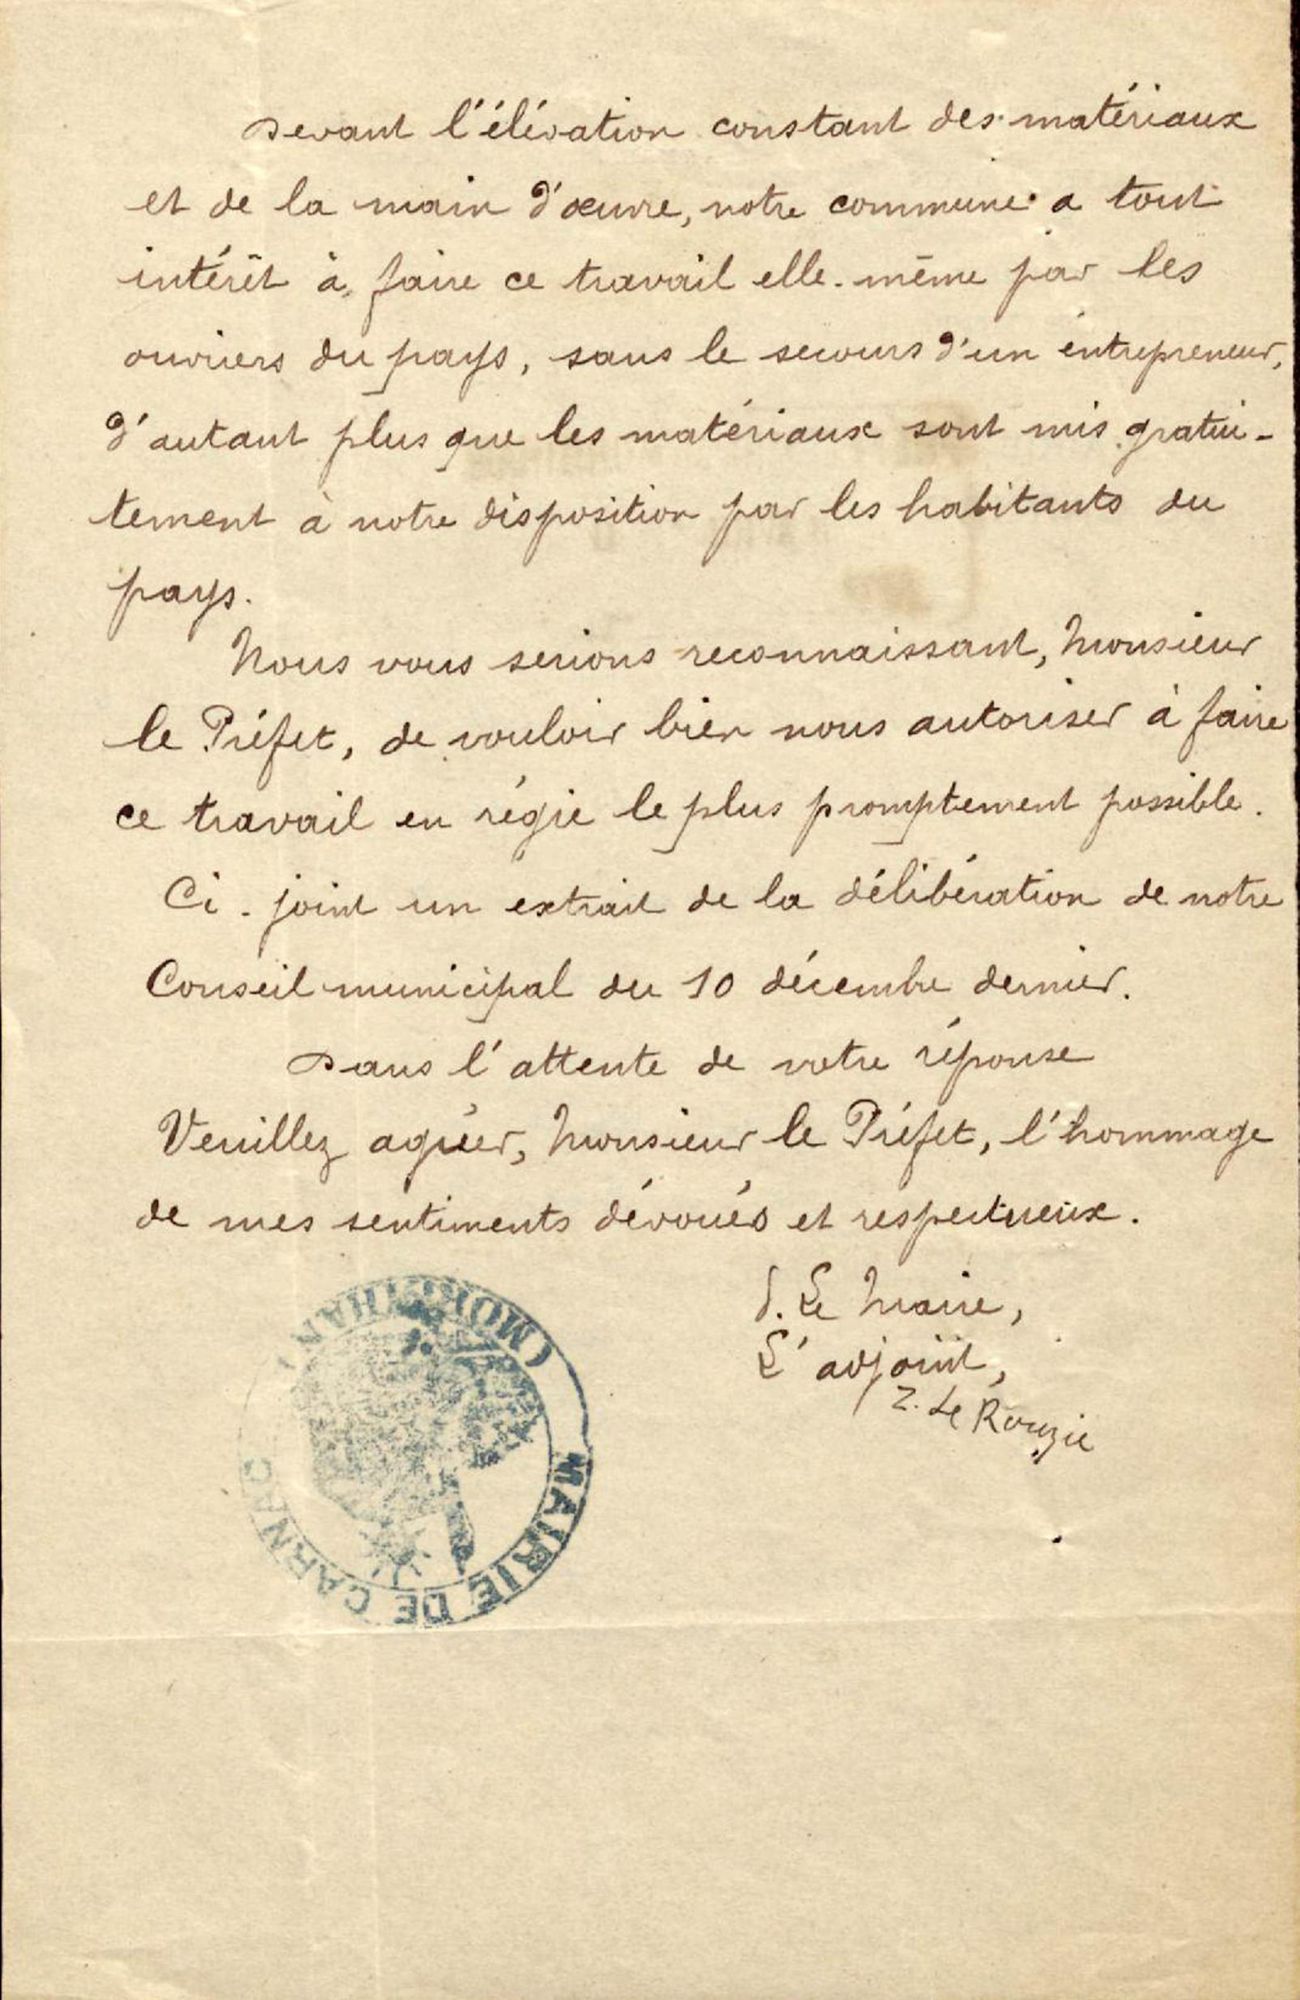 Devant l'élévation constant des matériaux
et de la main d'œuvre, notre commune a tout
intérêt à faire ce travail elle-même par les
ouvriers du pays, sans le secours d'un entrepreneur,
d'autant plus que les matériaux sont mis gratui-
tement à notre disposition par les habitants du
pays.
Nous vous serions reconnaissant, Monsieur
le Préfet, de vouloir bien nous autoriser à faire
ce travail en régie le plus promptement possible.
Ci-joint un extrait de la délibération de notre
Conseil municipal du 10 décembre dernier.
Dans l'attente de votre réponse
Veuillez agréer, Monsieur le Préfet, l'hommage
de mes sentiments dévoués et respectueux.
P. Le Maire,
L'adjoint,
Z. Le Rouzic
MAIRIE DE CARNAC
(MORBIHAN)